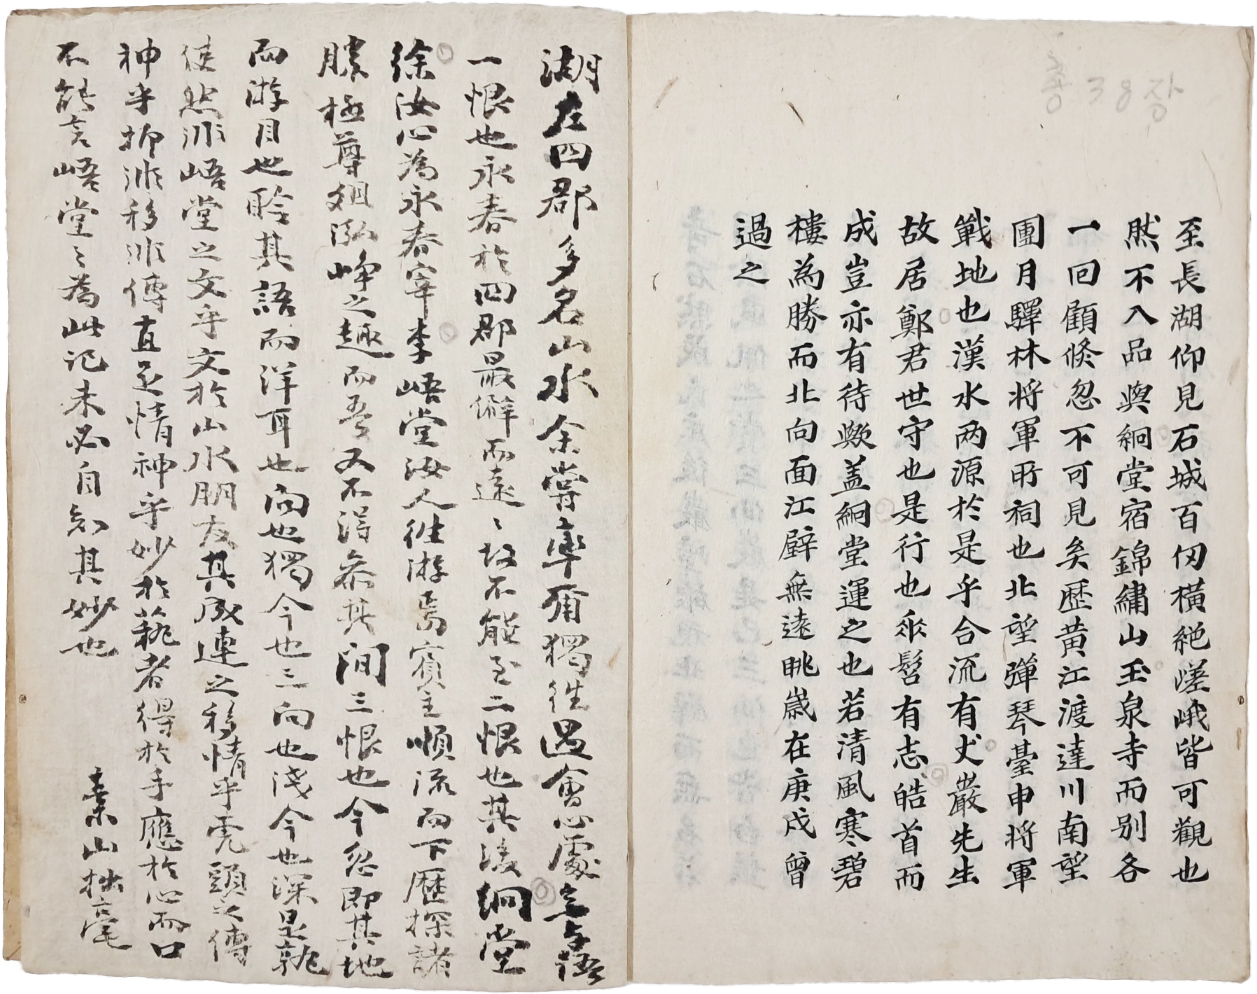 총 38장
至長湖仰見石城百仞橫絶嵯峨皆可觀也
然不入品與絅堂宿錦繡山玉泉寺而別各
一回顧倏忽不可見矣歷黃江渡達川南望
團月驛林將軍所祠也北望彈琴臺申將軍
戰地也漢水两源於是乎合流有丈巖先生
故居鄭君世守也是行也乘髫有志皓首而
成豈亦有待歟盖絅堂運之也若清風寒碧
樓為勝而北向面江壁無遠眺歲在庚戌曾
過之
湖左四郡多名山水余嘗率爾獨徃遇會心處無與語
一恨也永春於四郡最僻而遠〻故不能至二恨也其後絅堂
徐汝心為永春宰李峿堂汝人徃游焉賓主順流而下歷探諸
勝極尊俎泓崢之趣而吾又不得參其間三恨也今忽即其地
而游目也聆其語而洋耳也向也獨今也三向也淺今也深是孰
使然非峿堂之文乎文於山水朋友其成連之移情乎虎頭之傳
神乎抑非移非傳直是情神乎妙於蓺者得於手應於心而口
不能言峿堂〻為此記未必自知其妙也
素山拙毫